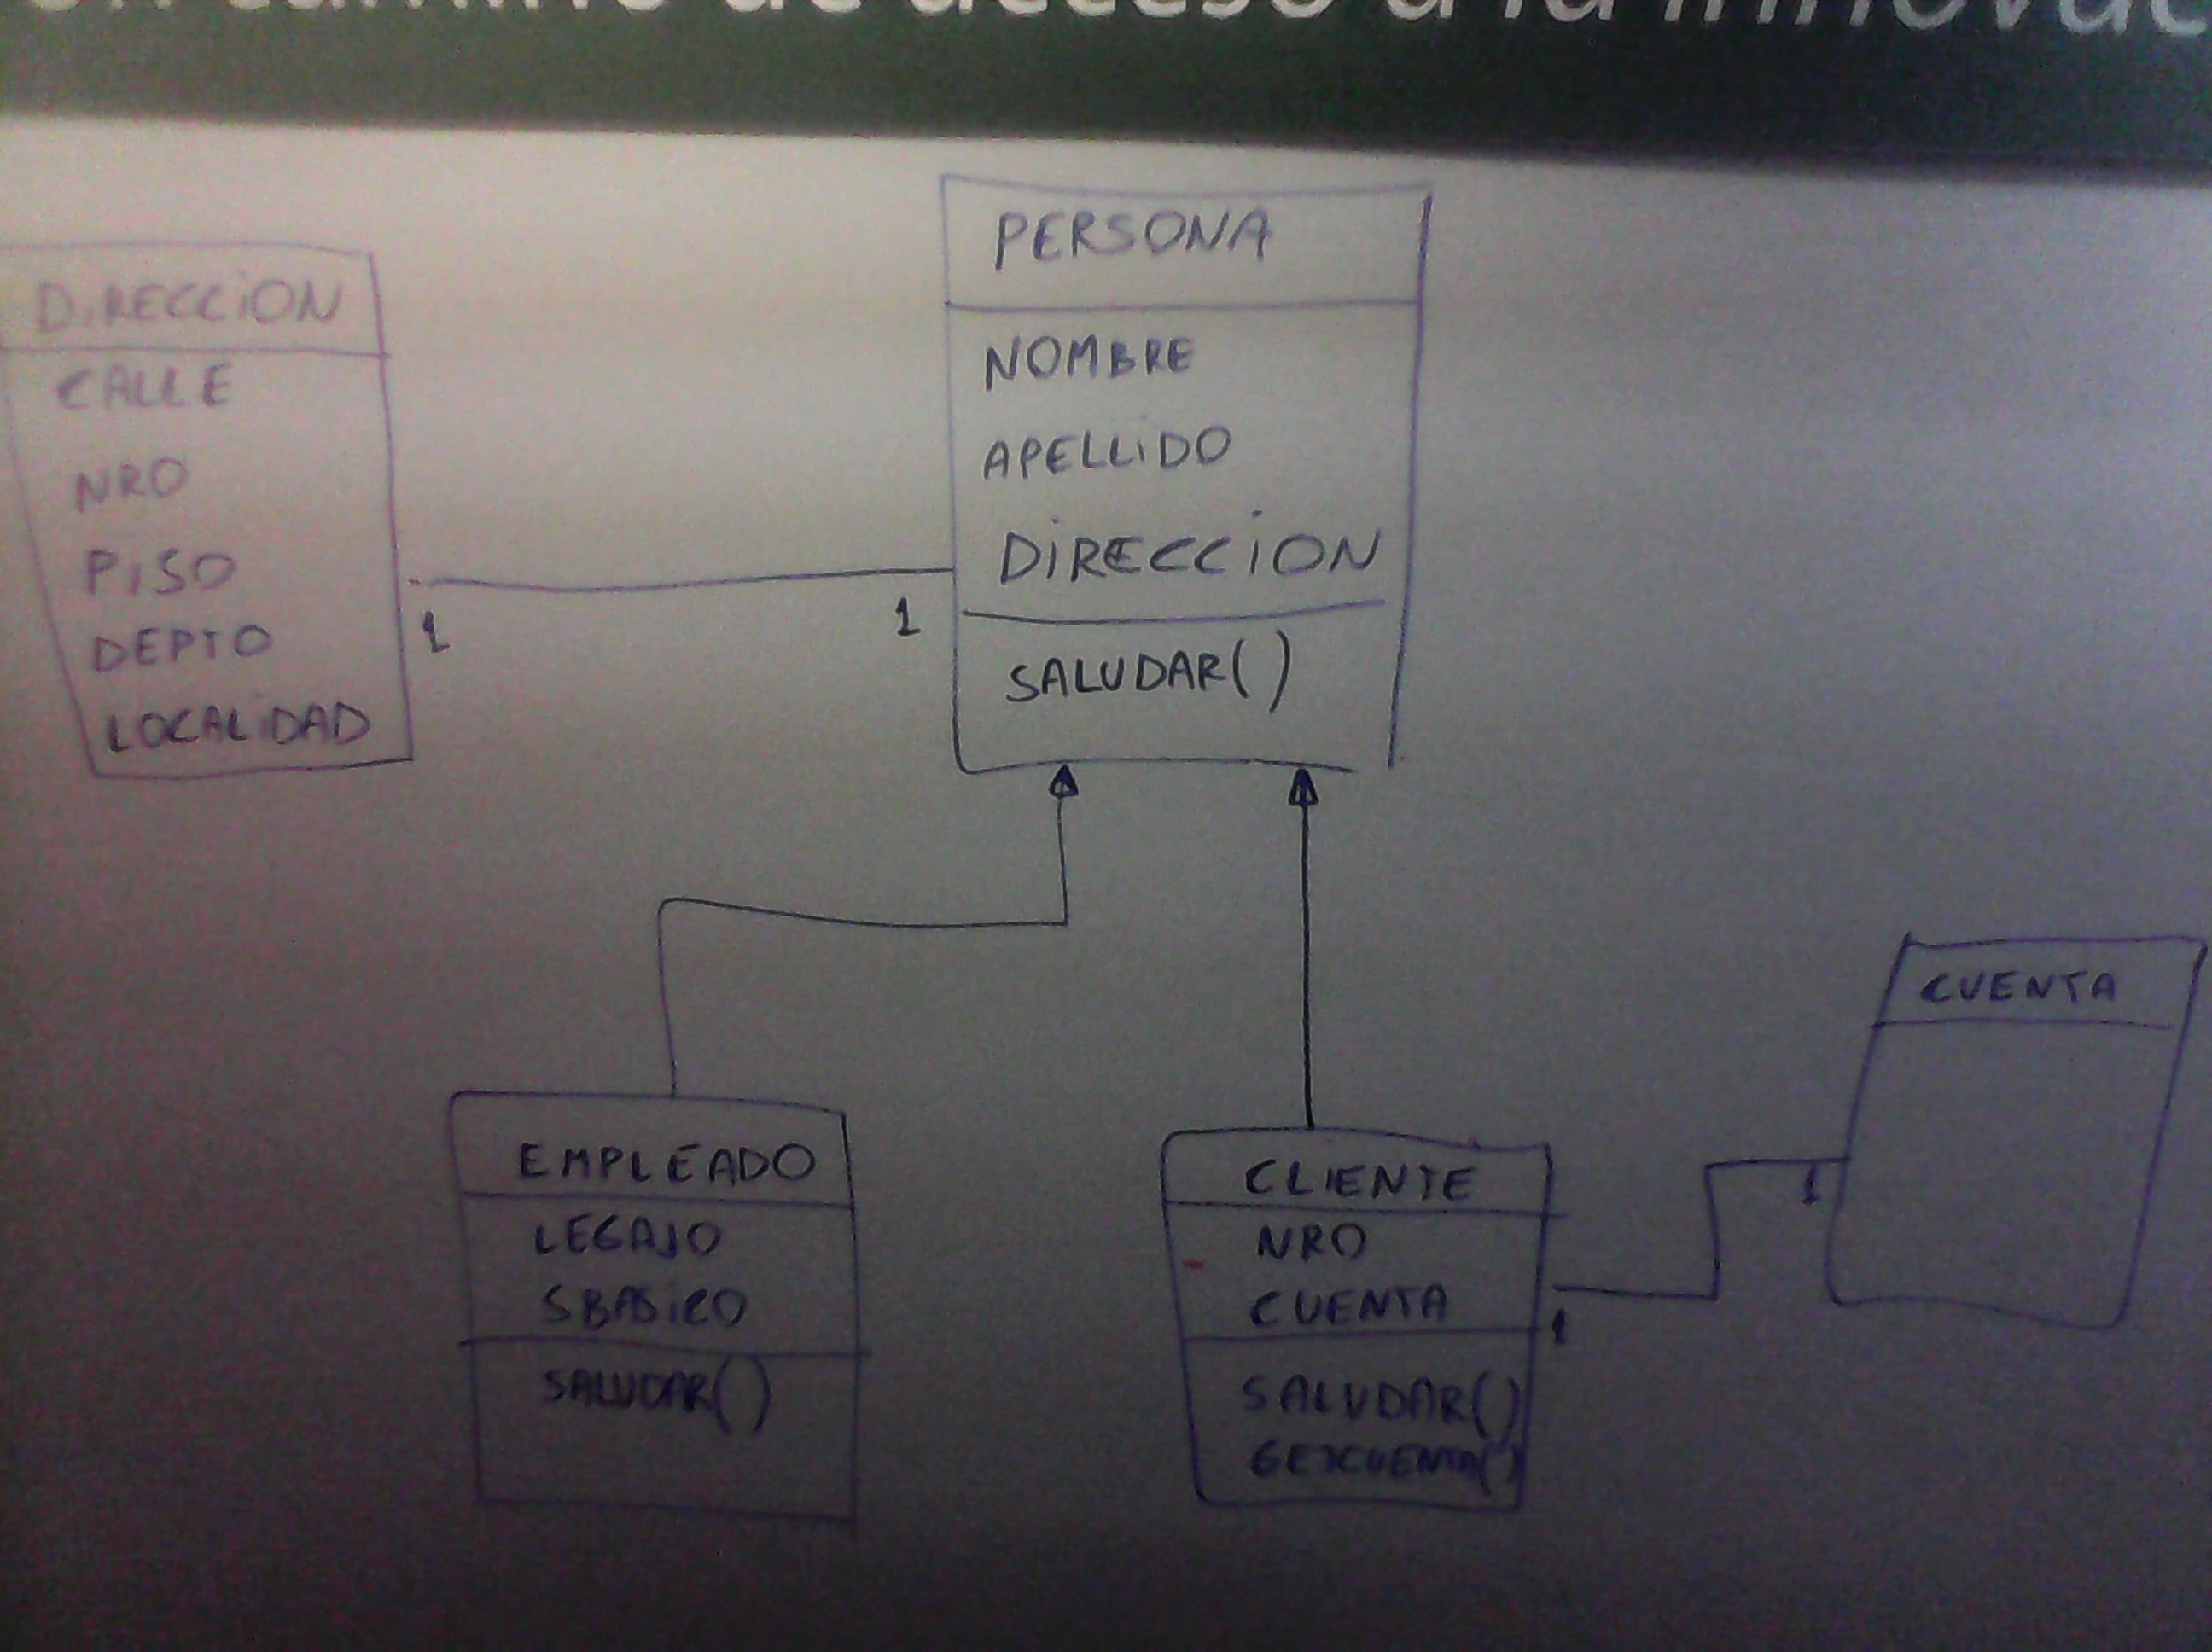 un camino de acceso a la innovac
DIRECCION
CALLE
NRO
PISO
DEPTO
LOCALIDAD
1
1
PERSONA
NOMBRE
APELLIDO
DIRECCION
SALUDAR()
EMPLEADO
LEGAJO
SBASICO
SALUDAR()
CLIENTE
NRO
CUENTA
SALUDAR()
GETCUENTA()
1
1
CUENTA